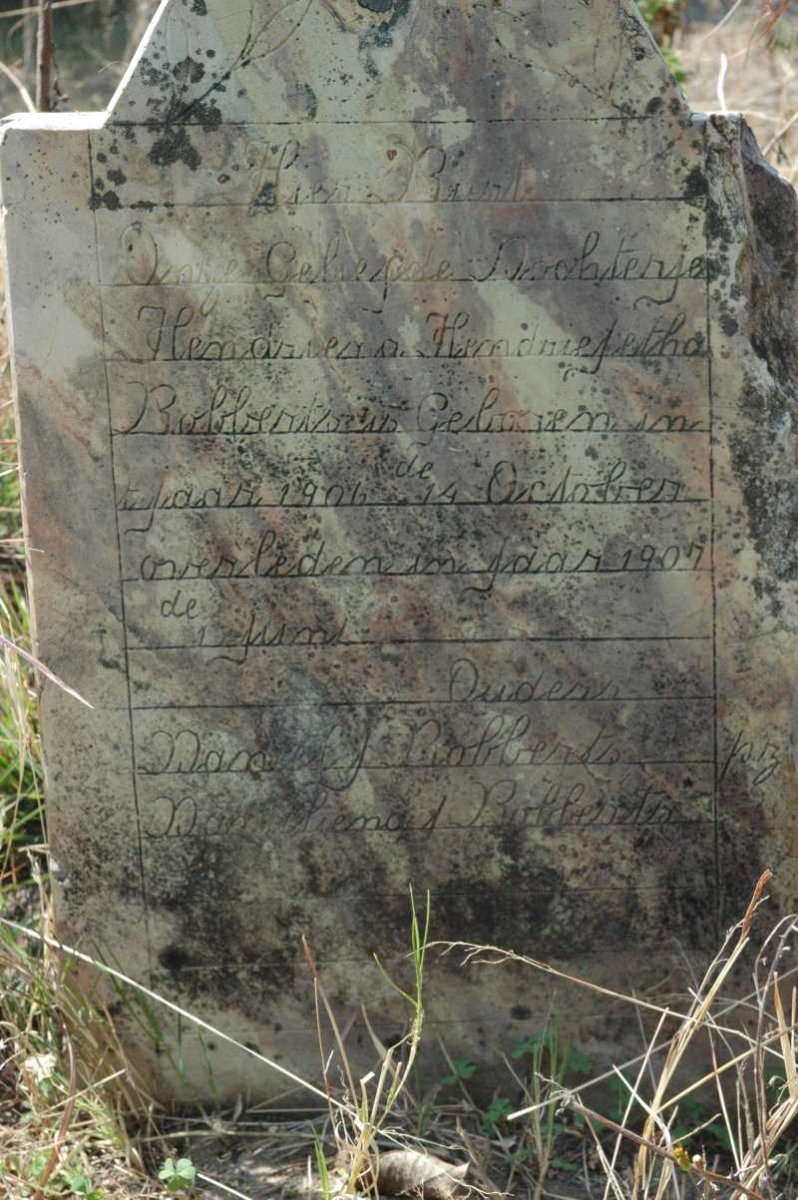 Hier Rust
Onze Geliefde Dochterje
Hendriena Hendriefetha
Robberts is Geboren in
t Jaar 1906 de 14 October
overleden in Jaar 1907
de 1 Juni
Ouders
Daniel J Robberts
Robberts